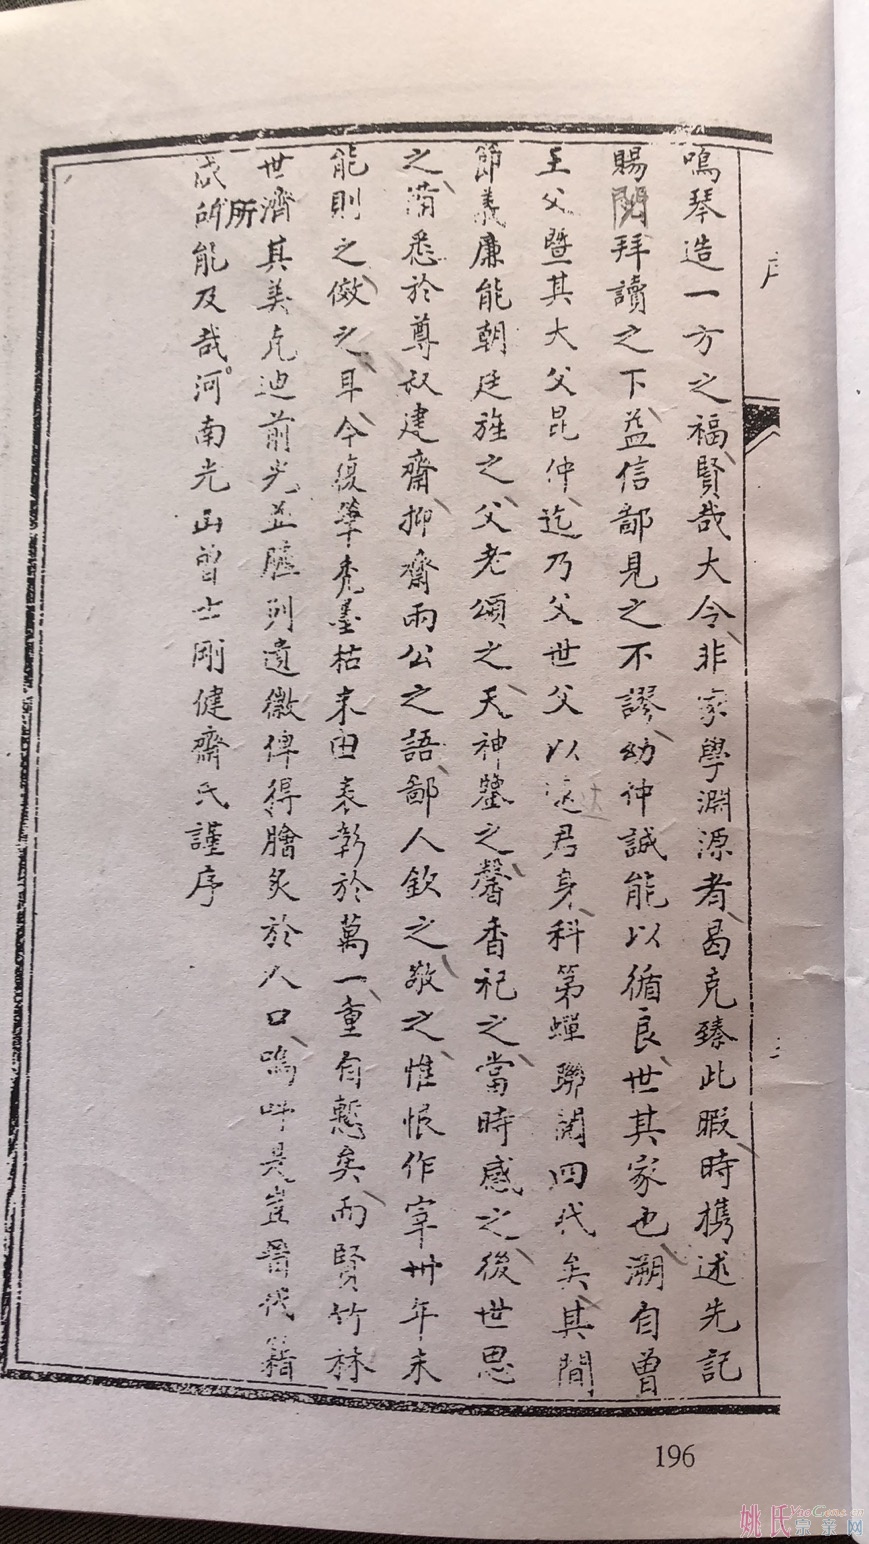 序
鳴琴造一方之福賢哉大令非家學淵源者曷克臻此暇時携述先記
賜閱拜讀之下益信鄙見之不謬幼仲誠能以循良世其家也溯自曾
王父暨其大父昆仲迄乃父世父以逮君身科第蟬聯閱四代矣其間
節義廉能朝廷旌之父老頌之天神鑒之馨香祀之當時感之後世思
之備悉於尊奴建齋抑齋兩公之語鄙人欽之敬之惟恨作宰卅年未
能則之傚之耳今復筆禿墨枯未由表彰於萬一重自慙矣而賢竹林
世濟其美克迪前光並臚列遺徽俾得膾炙於人口嗚呼是豈晋代籍
咸所能及哉河南光山曾士剛健齋氏謹序
所
196
姚氏宗亲网
YaoGens.cn